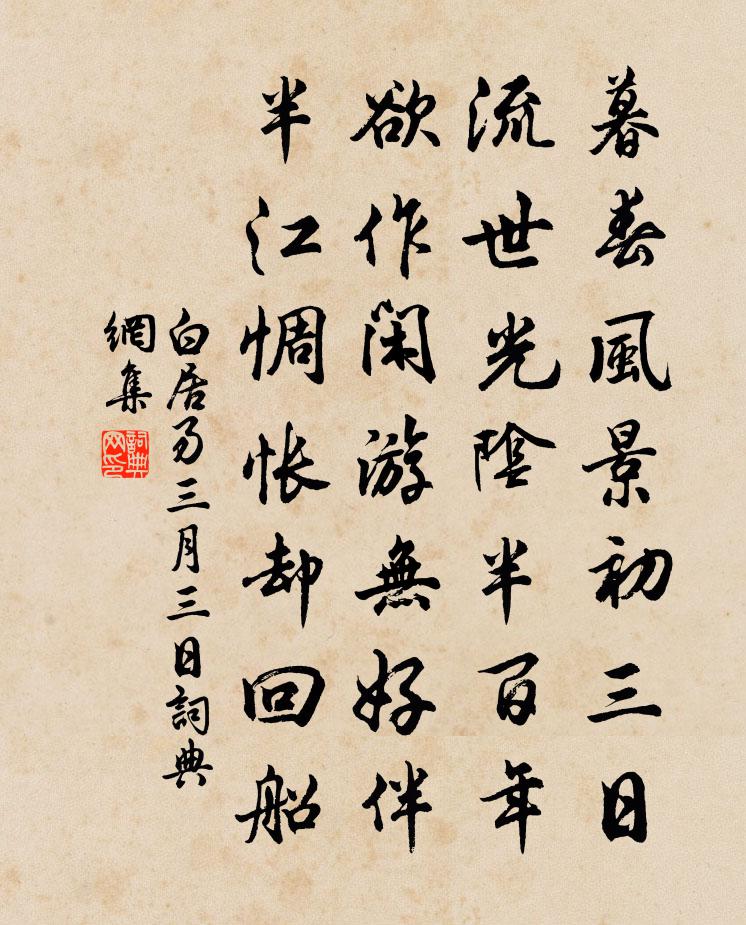 暮春風景初三日
流世光陰半百年
欲作閑游無好伴
半江惆悵却回船
白居易三月三日詞典
網集
詞典
网印